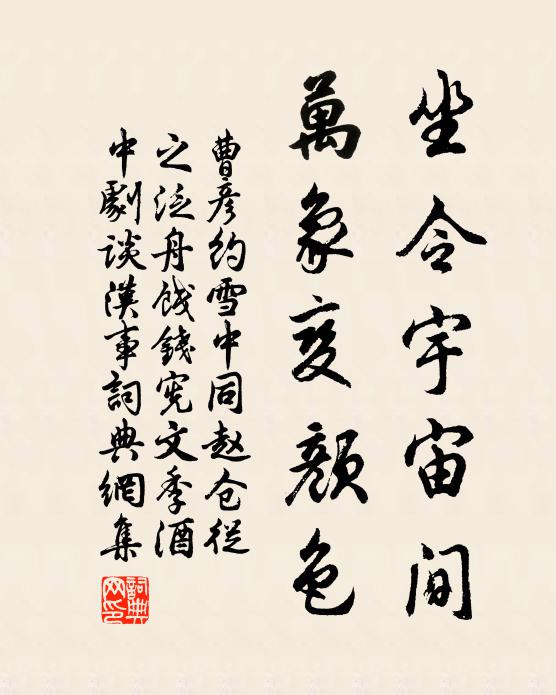 坐令宇宙间
萬象变颜色
曹彦约雪中同赵仓從
之泛舟饯錢宪文季酒
中劇谈漢事詞典網集
詞典
网印